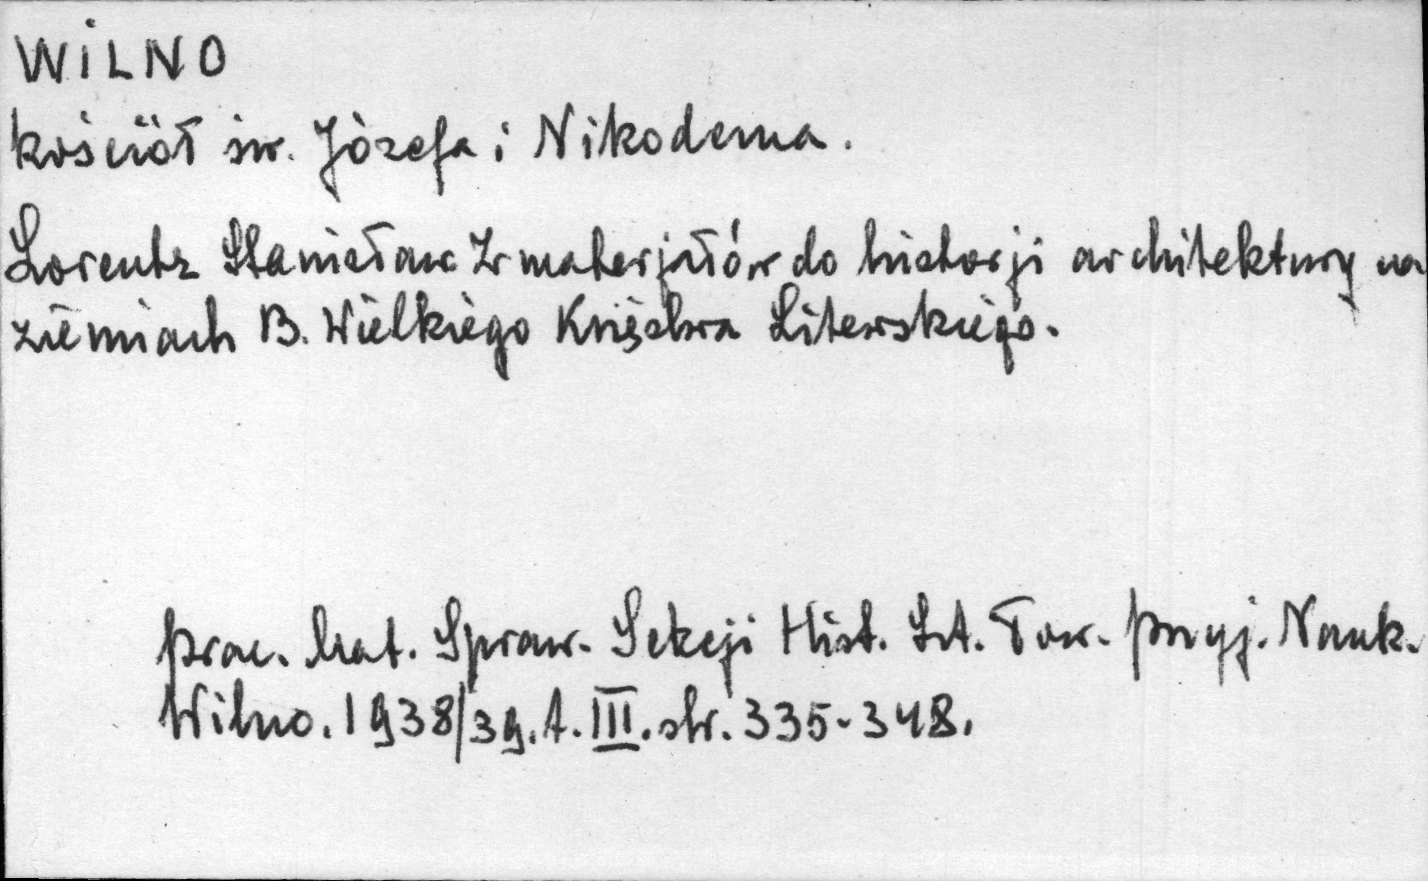 WILNO
kościół św. Józefa i Nikodema.
Lorentz Stanisław Z materjałów do historji architektury na
ziemiach B. Wielkiego Księstwa Litewskiego.
Prac. Mat. Spraw. Sekcji Hist. Szt. Tow. Przyj. Nauk.
Wilno. 1938/39. t. III. str. 335-348.